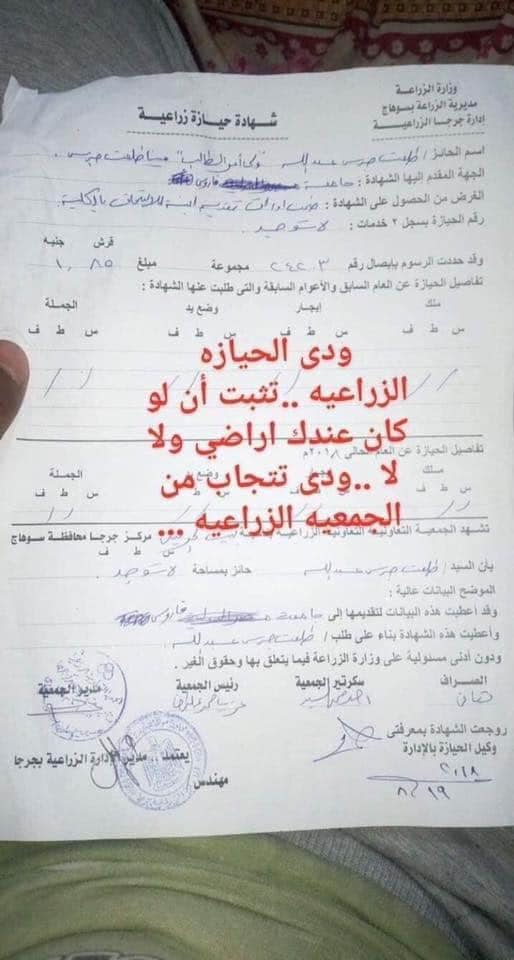 وزارة الزراعة
مديرية الزراعة بسوهاج
إدارة جرجا الزراعية
شهادة حيازة زراعية
اسم الحائز / طلعت جرس عبدالله "ولى أمر الطالب"
الجهة المقدم اليها الشهادة : جامعة فاروس
الغرض من الحصول على الشهادة :
رقم الحيازة بسجل ٢ خدمات : لا توجد
قرش جنيه
وقد حددت الرسوم بإيصال رقم ٢٤٢٠٣ مجموعة مبلغ ١٫٨٥
تفاصيل الحيازة عن العام السابق والأعوام السابقة والتى طلبت عنها الشهادة :
ملك إيجار وضع يد الجملة
س ط ف س ط ف س ط ف س ط ف
ودى الحيازه
الزراعيه ..تثبت أن لو
كان عندك اراضي ولا
لا ..ودى تتجاب من
الجمعيه الزراعيه ...
تفاصيل الحيازة عن العام الحالى ٢٠١٨م
ملك وضع يد الجملة
س ط ف س ط ف
تشهد الجمعية التعاونية مركز جرجا محافظة سوهاج
بأن السيد / طلعت جرس عبدالله حائز بمساحة لا توجد
الموضح البيانات عالية :
وقد أعطيت هذه البيانات لتقديمها إلى جامعة فاروس
وأعطيت هذه الشهادة بناء على طلب / طلعت جرس عبدالله
ودون أدنى مسئولية على وزارة الزراعة فيما يتعلق بها وحقوق الغير .
الصراف سكرتير الجمعية رئيس الجمعية مدير الجمعية
هانى
روجعت الشهادة بمعرفتى
وكيل الحيازة بالإدارة
يعتمد .. مدير الإدارة الزراعية بجرجا
مهندس
٢٠١٨
٨/١٩